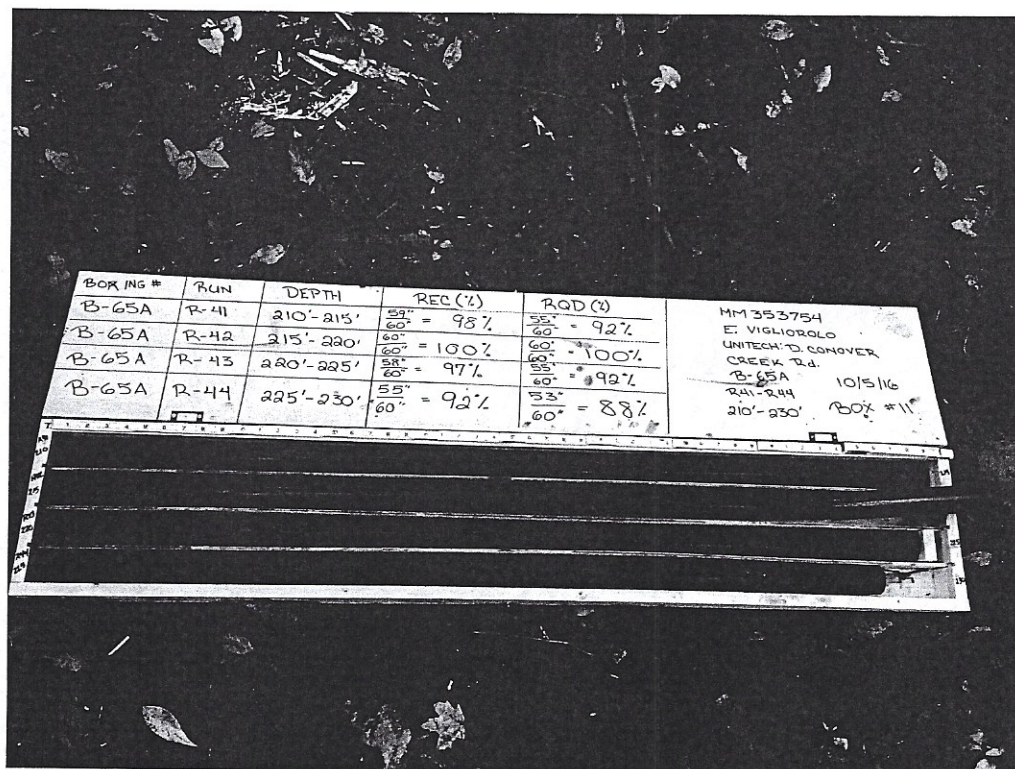 BORING # RUN DEPTH REC (%) RQD (%)
B-65A R-41 210'-215' 59"/60" = 98% 55"/60 = 92%
B-65A R-42 215'-220' 60"/60" = 100% 60"/60" = 100%
B-65A R-43 220'-225' 58"/60" = 97% 55"/60" = 92%
B-65A R-44 225'-230' 55"/60" = 92% 53"/60" = 88%
MM 353754
E. VIGLIOROLO
UNITECH: D. CONOVER
CREEK Rd.
B-65A 10/5/16
R41-R44
210'-230' BOX #11